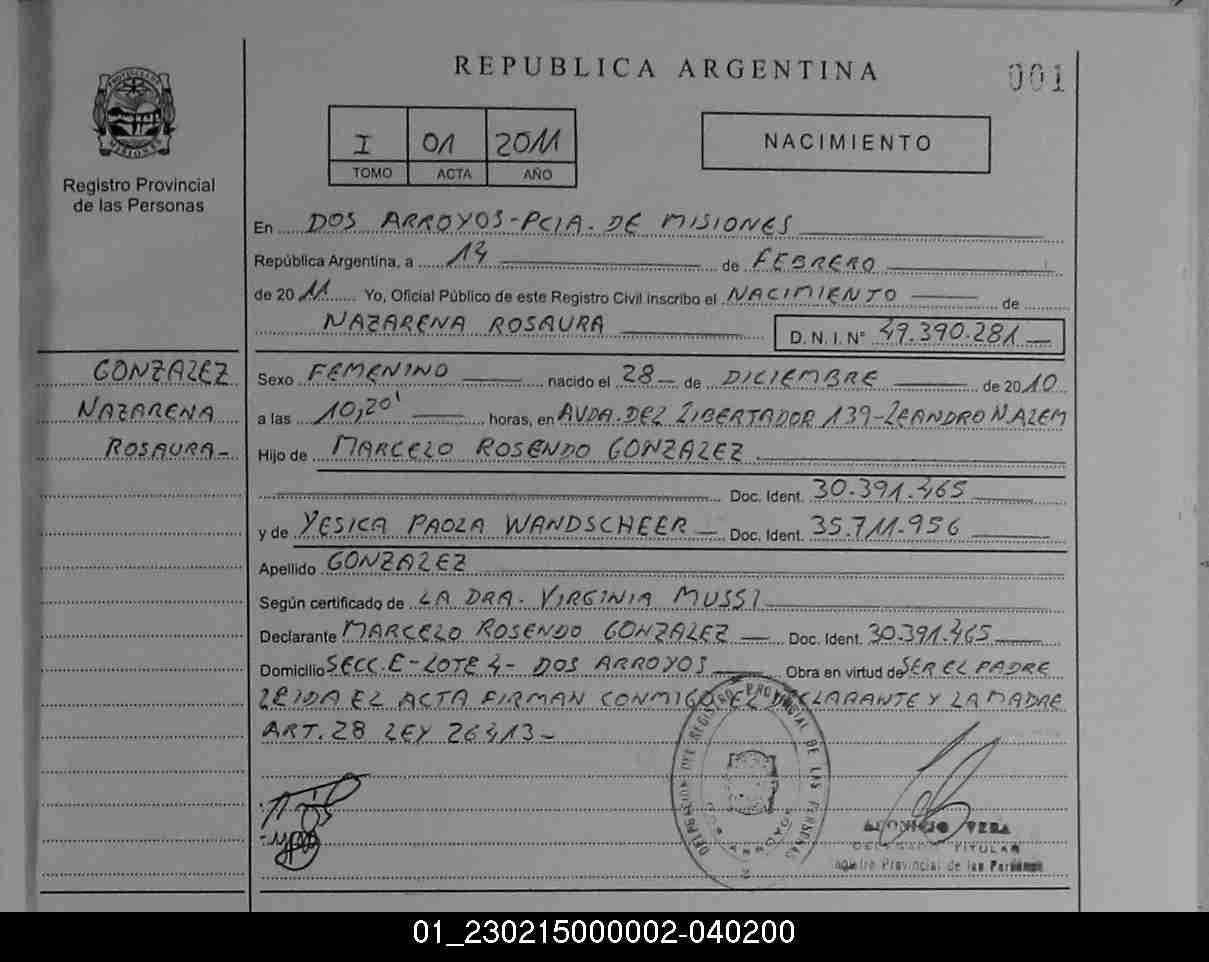 REPUBLICA ARGENTINA
001
PROVINCIA DE
MISIONES
Registro Provincial
de las Personas
I 01 2011
TOMO ACTA AÑO
NACIMIENTO
En DOS ARROYOS-PCIA. DE MISIONES
República Argentina, a 14 de FEBRERO
de 2011 Yo, Oficial Público de este Registro Civil inscribo el NACIMIENTO de
NAZARENA ROSAURA D.N.I. N° 49.390.281-
GONZALEZ
NAZARENA
ROSAURA-
Sexo FEMENINO nacido el 28- de DICIEMBRE de 2010
a las 10,20' horas, en AVDA. DEL LIBERTADOR 139-LEANDRO N ALEM
Hijo de MARCELO ROSENDO GONZALEZ
Doc. Ident. 30.391.465
y de YESICA PAOLA WANDSCHEER- Doc. Ident. 35.711.956
Apellido GONZALEZ
Según certificado de LA DRA. VIRGINIA MUSSI
Declarante MARCELO ROSENDO GONZALEZ - Doc. Ident. 30.391.465
Domicilio SECC. E-LOTE 4- DOS ARROYOS Obra en virtud de SER EL PADRE
LEIDA EL ACTA FIRMAN CONMIGO EL DECLARANTE Y LA MADRE
ART. 28 LEY 26413-
DELEGACION DEL REGISTRO PROVINCIAL DE LAS PERSONAS
DOS ARROYOS
VERA
DELEGADO TITULAR
Registro Provincial de las Personas
01_230215000002-040200